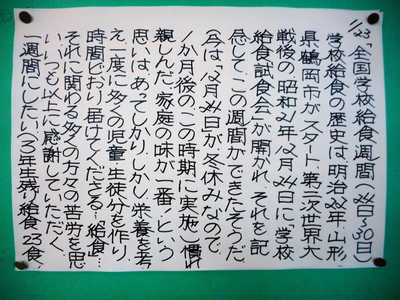 1/23「全国学校給食週間(24日～30日)
学校給食の歴史は、明治22年、山形
県鶴岡市がスタート。第二次世界大
戦後の昭和21年12月24日に、学校
給食試食会が開かれ、それを記
念して、この週間ができたそうだ。
今は「12月24日」が冬休みなので、
1か月後のこの時期に実施。慣れ
親しんだ「家庭の味が一番」という
思いはあってしかり。しかし、栄養を考
え一度に多くの児童・生徒分を作り、
時間どおり届けてくださる…給食…
それに関わる多くの方々の苦労を思
い、いつも以上に感謝していただく
一週間にしたい。(3年生残り給食23食)